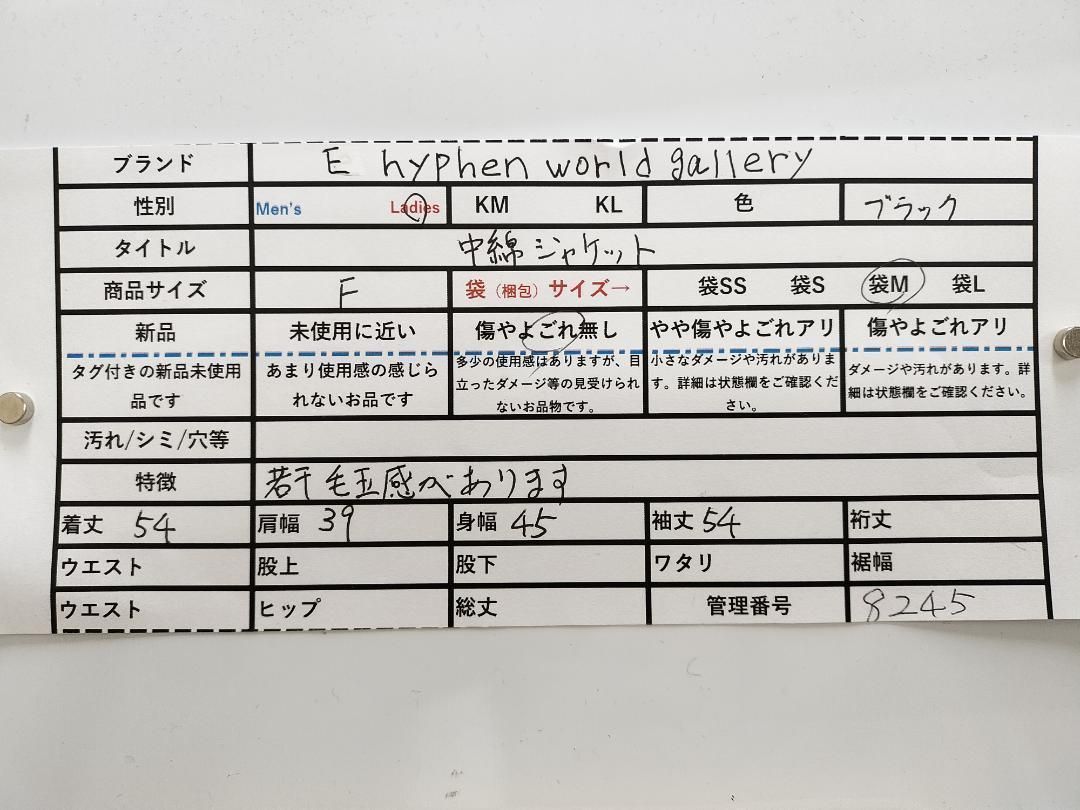 ブランド E hyphen world gallery
性別 Men's Ladies KM KL 色 ブラック
タイトル 中綿ジャケット
商品サイズ F 袋（梱包）サイズ→ 袋SS 袋S 袋M 袋L
新品 未使用に近い 傷やよごれ無し やや傷やよごれアリ 傷やよごれアリ
タグ付きの新品未使用
品です
あまり使用感の感じら
れないお品です
多少の使用感はありますが、目
立ったダメージ等の見受けられ
ないお品物です。
小さなダメージや汚れがありま
す。詳細は状態欄をご確認くだ
さい。
ダメージや汚れがあります。詳
細は状態欄をご確認ください。
汚れ/シミ/穴等
特徴 若干毛玉感があります
着丈 54 肩幅 39 身幅 45 袖丈 54 裄丈
ウエスト 股上 股下 ワタリ 裾幅
ウエスト ヒップ 総丈 管理番号 8245